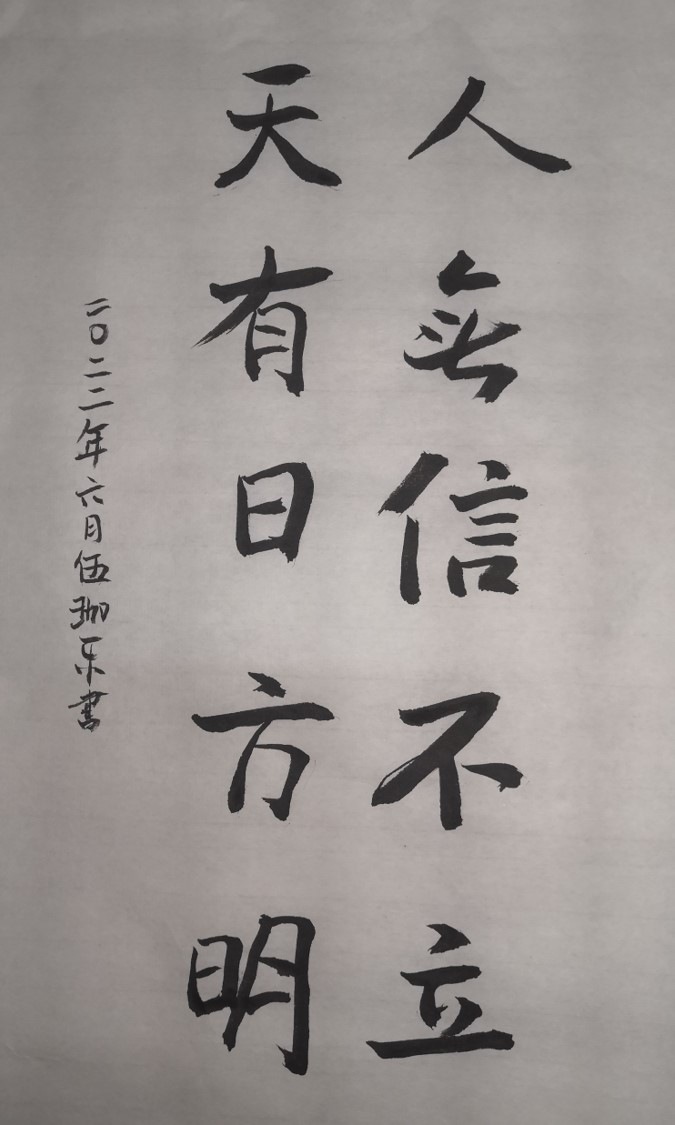 人無信不立
天有日方明
二〇二二年六月伍珈乐書